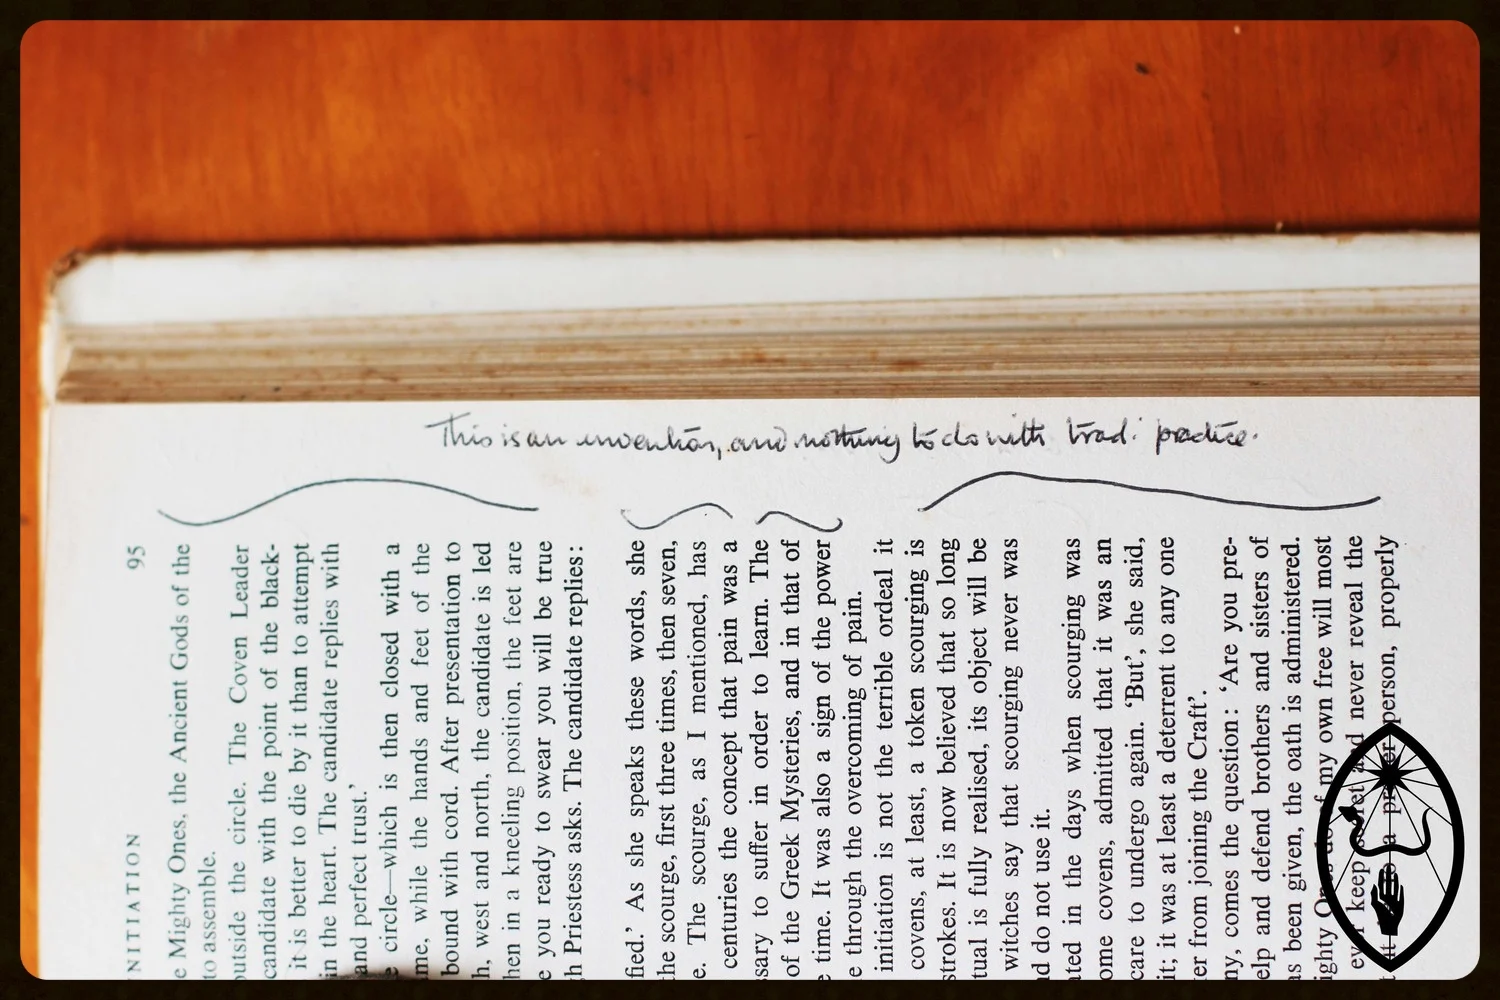 This is an invention, and nothing to do with trad. practice.
NITIATION 95
e Mighty Ones, the Ancient Gods of the
to assemble.
outside the circle. The Coven Leader
candidate with the point of the black-
it is better to die by it than to attempt
in the heart. The candidate replies with
and perfect trust.’
e circle—which is then closed with a
me, while the hands and feet of the
bound with cord. After presentation to
h, west and north, the candidate is led
hen in a kneeling position, the feet are
e you ready to swear you will be true
h Priestess asks. The candidate replies:
fied.’ As she speaks these words, she
the scourge, first three times, then seven,
e. The scourge, as I mentioned, has
centuries the concept that pain was a
ssary to suffer in order to learn. The
of the Greek Mysteries, and in that of
e time. It was also a sign of the power
e through the overcoming of pain.
initiation is not the terrible ordeal it
covens, at least, a token scourging is
strokes. It is now believed that so long
tual is fully realised, its object will be
witches say that scourging never was
nd do not use it.
ted in the days when scourging was
ome covens, admitted that it was an
care to undergo again. ‘But’, she said,
it; it was at least a deterrent to any one
er from joining the Craft’.
ny, comes the question: ‘Are you pre-
elp and defend brothers and sisters of
as been given, the oath is administered.
ighty Ones do of my own free will most
ever keep secret and never reveal the
to a proper person, properly